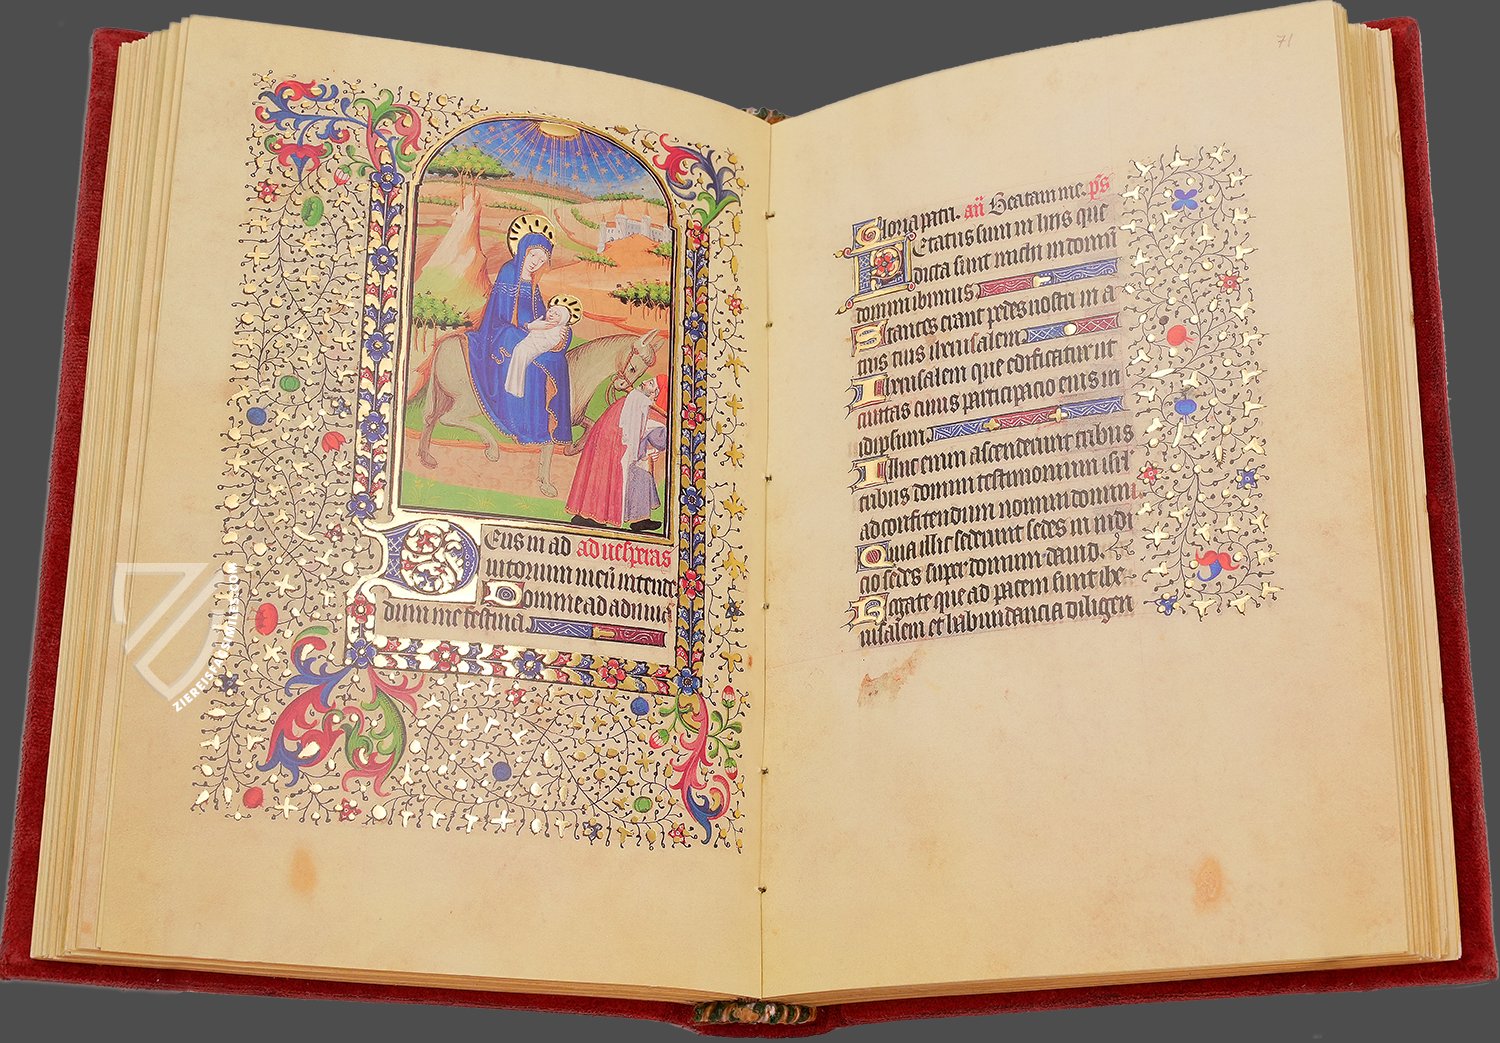 Eus in ad ad uesperas
iutorium meū intende
Domine ad adiuua
dum me festina.
ZIEREIS FAKSIMILES.COM
71
Gloria patri. an̄ Beatam me. ps̄
Letatus sum in hijs que
dicta sunt michi in domū
domini ibimus
Stantes erant pedes nostri in a
trijs tuis iherusalem
Iherusalem que edificatur ut
ciuitas cuius participatio eius in
idipsum
Illuc enim ascenderunt tribus
tribus domini testimonium isrl'
ad confitendum nomini domini
Quia illic sederunt sedes in iudi
cio sedes super domum dauid.
Rogate que ad pacem sunt ihe
rusalem et habundancia diligen